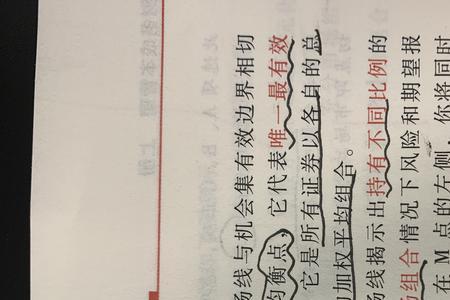 场线与机会集有效边界相切
均衡点，它代表唯一最有效
它是所有证券以各自的总
加权平均组合。
场线揭示出持有不同比例的
场组合情况下风险和期望报
在 M 点的左侧，你将同时